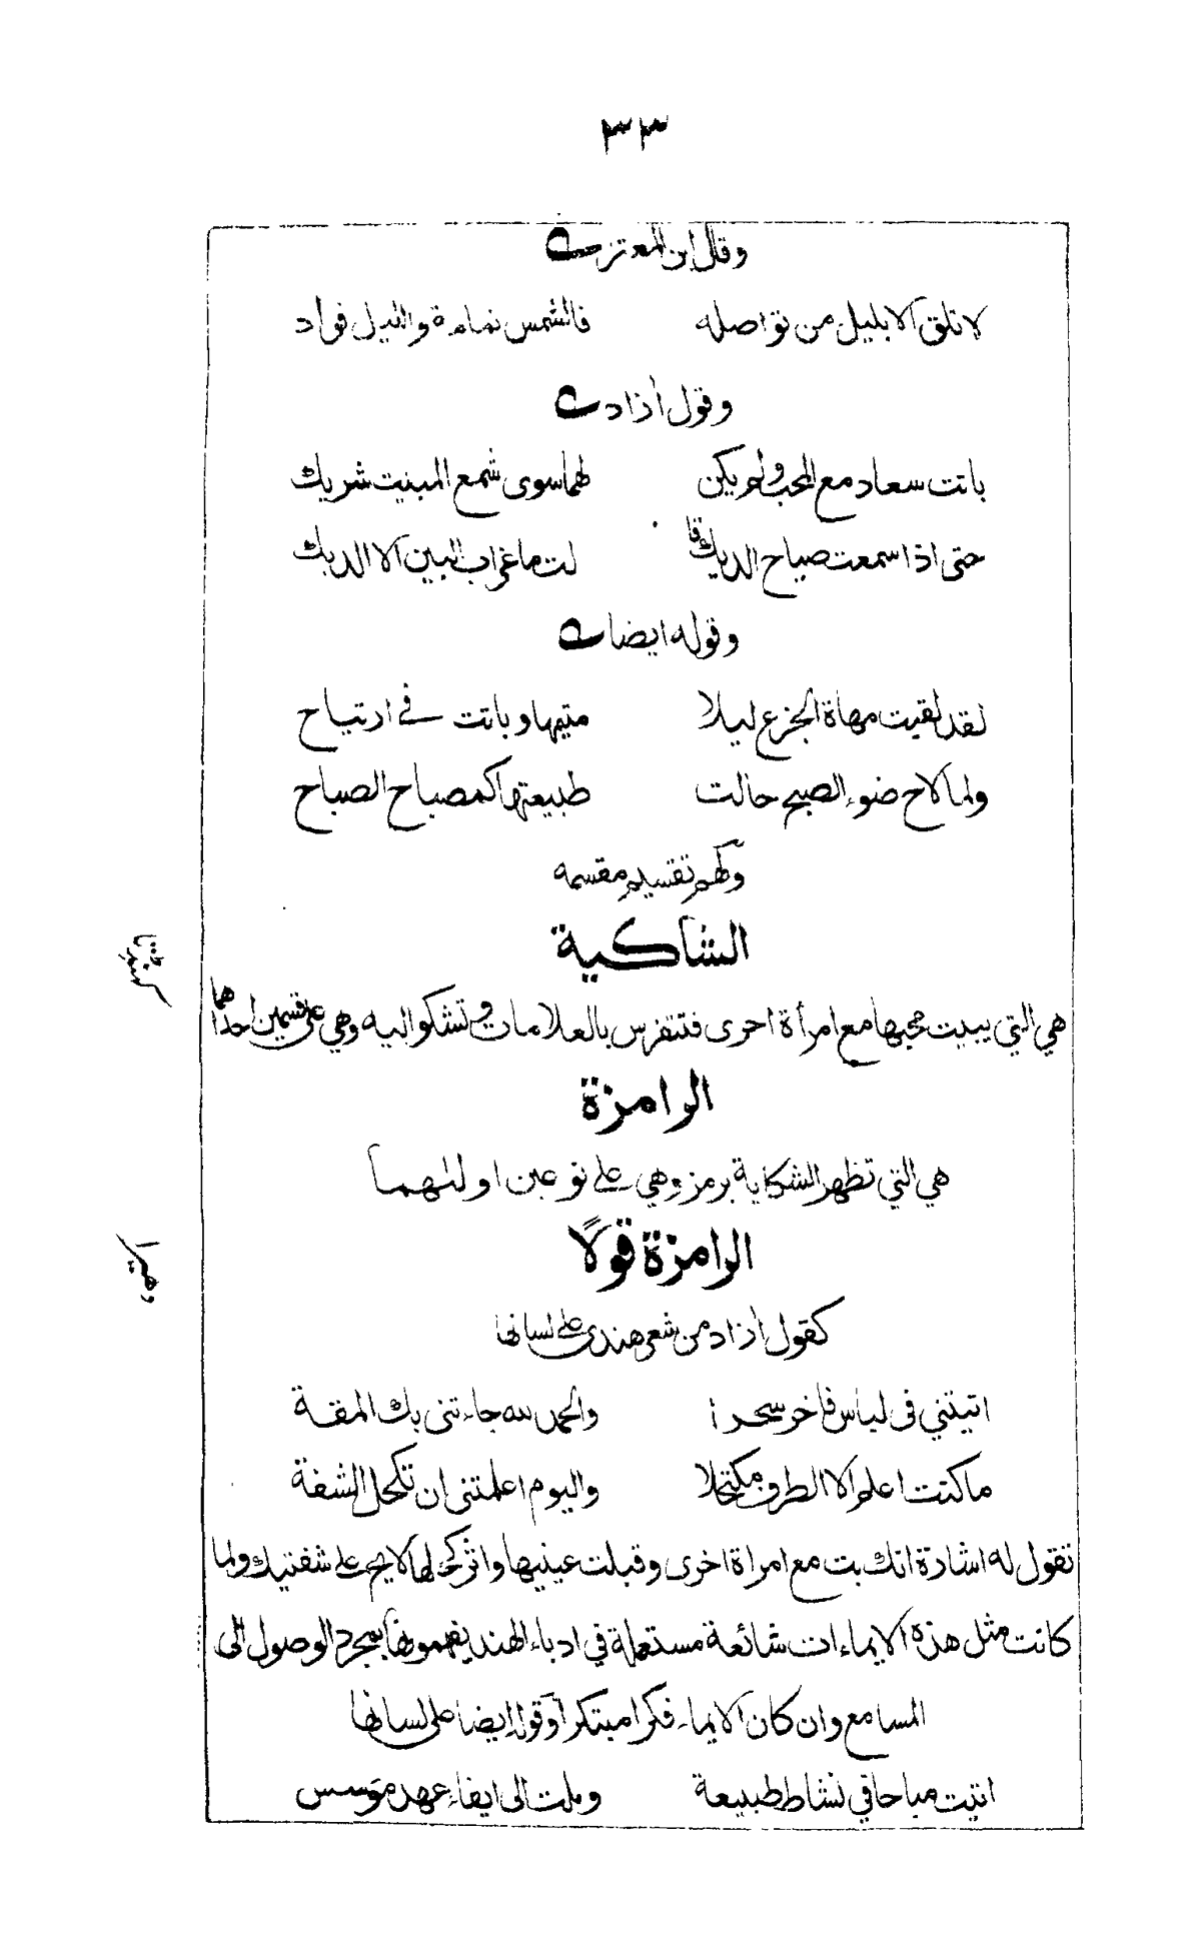 ٣٣
وقال ابن المعتز
لا تلق الا بليل من تواصله فالشمس نمامة والليل قواد
وقول أزاد
باتت سعاد مع المحب ولم يكن لهما سوى شمع المبيت شريك
حتى اذا سمعت صياح الديك قا لت ما غراب البين الا الديك
وقوله ايضا
لقد لقيت مهاة الجزع ليلا متيمها وباتت في ارتياح
ولما لاح ضوء الصبح حالت طبيعتها كمصباح الصباح
ولهم تقسيم مقسمه
الشاكية
هي التي يبيت محبها مع امرأة اخرى فتتفرس بالعلامات وتشكو اليه وهي على قسمين احداهما
الرامزة
هي التي تظهر الشكاية برمز وهي على نوعين اولهما
الرامزة قولًا
دهيرا
كقول أزاد من شعر هندى على لسانها
اتيتني في لباس فاخر سحرا والحمد لله جاءتنى بك المقة
ما كنت اعلم الا الطرف مكتحلا واليوم اعلمتنى ان تكحل الشفة
تقول له اشارة انك بت مع امراة اخرى وقبلت عينيها واثر كحلها لايح على شفتيك ولما
كانت مثل هذه الايماءات شائعة مستعملة في ادباء الهند يفهمونها بمجرد الوصول الى
المسامع وان كان الايماء فكرا مبتكرا وقوله ايضا على لسانها
اتيت صباحا في نشاط طبيعة وملت الى ايفاء عهد مؤسس